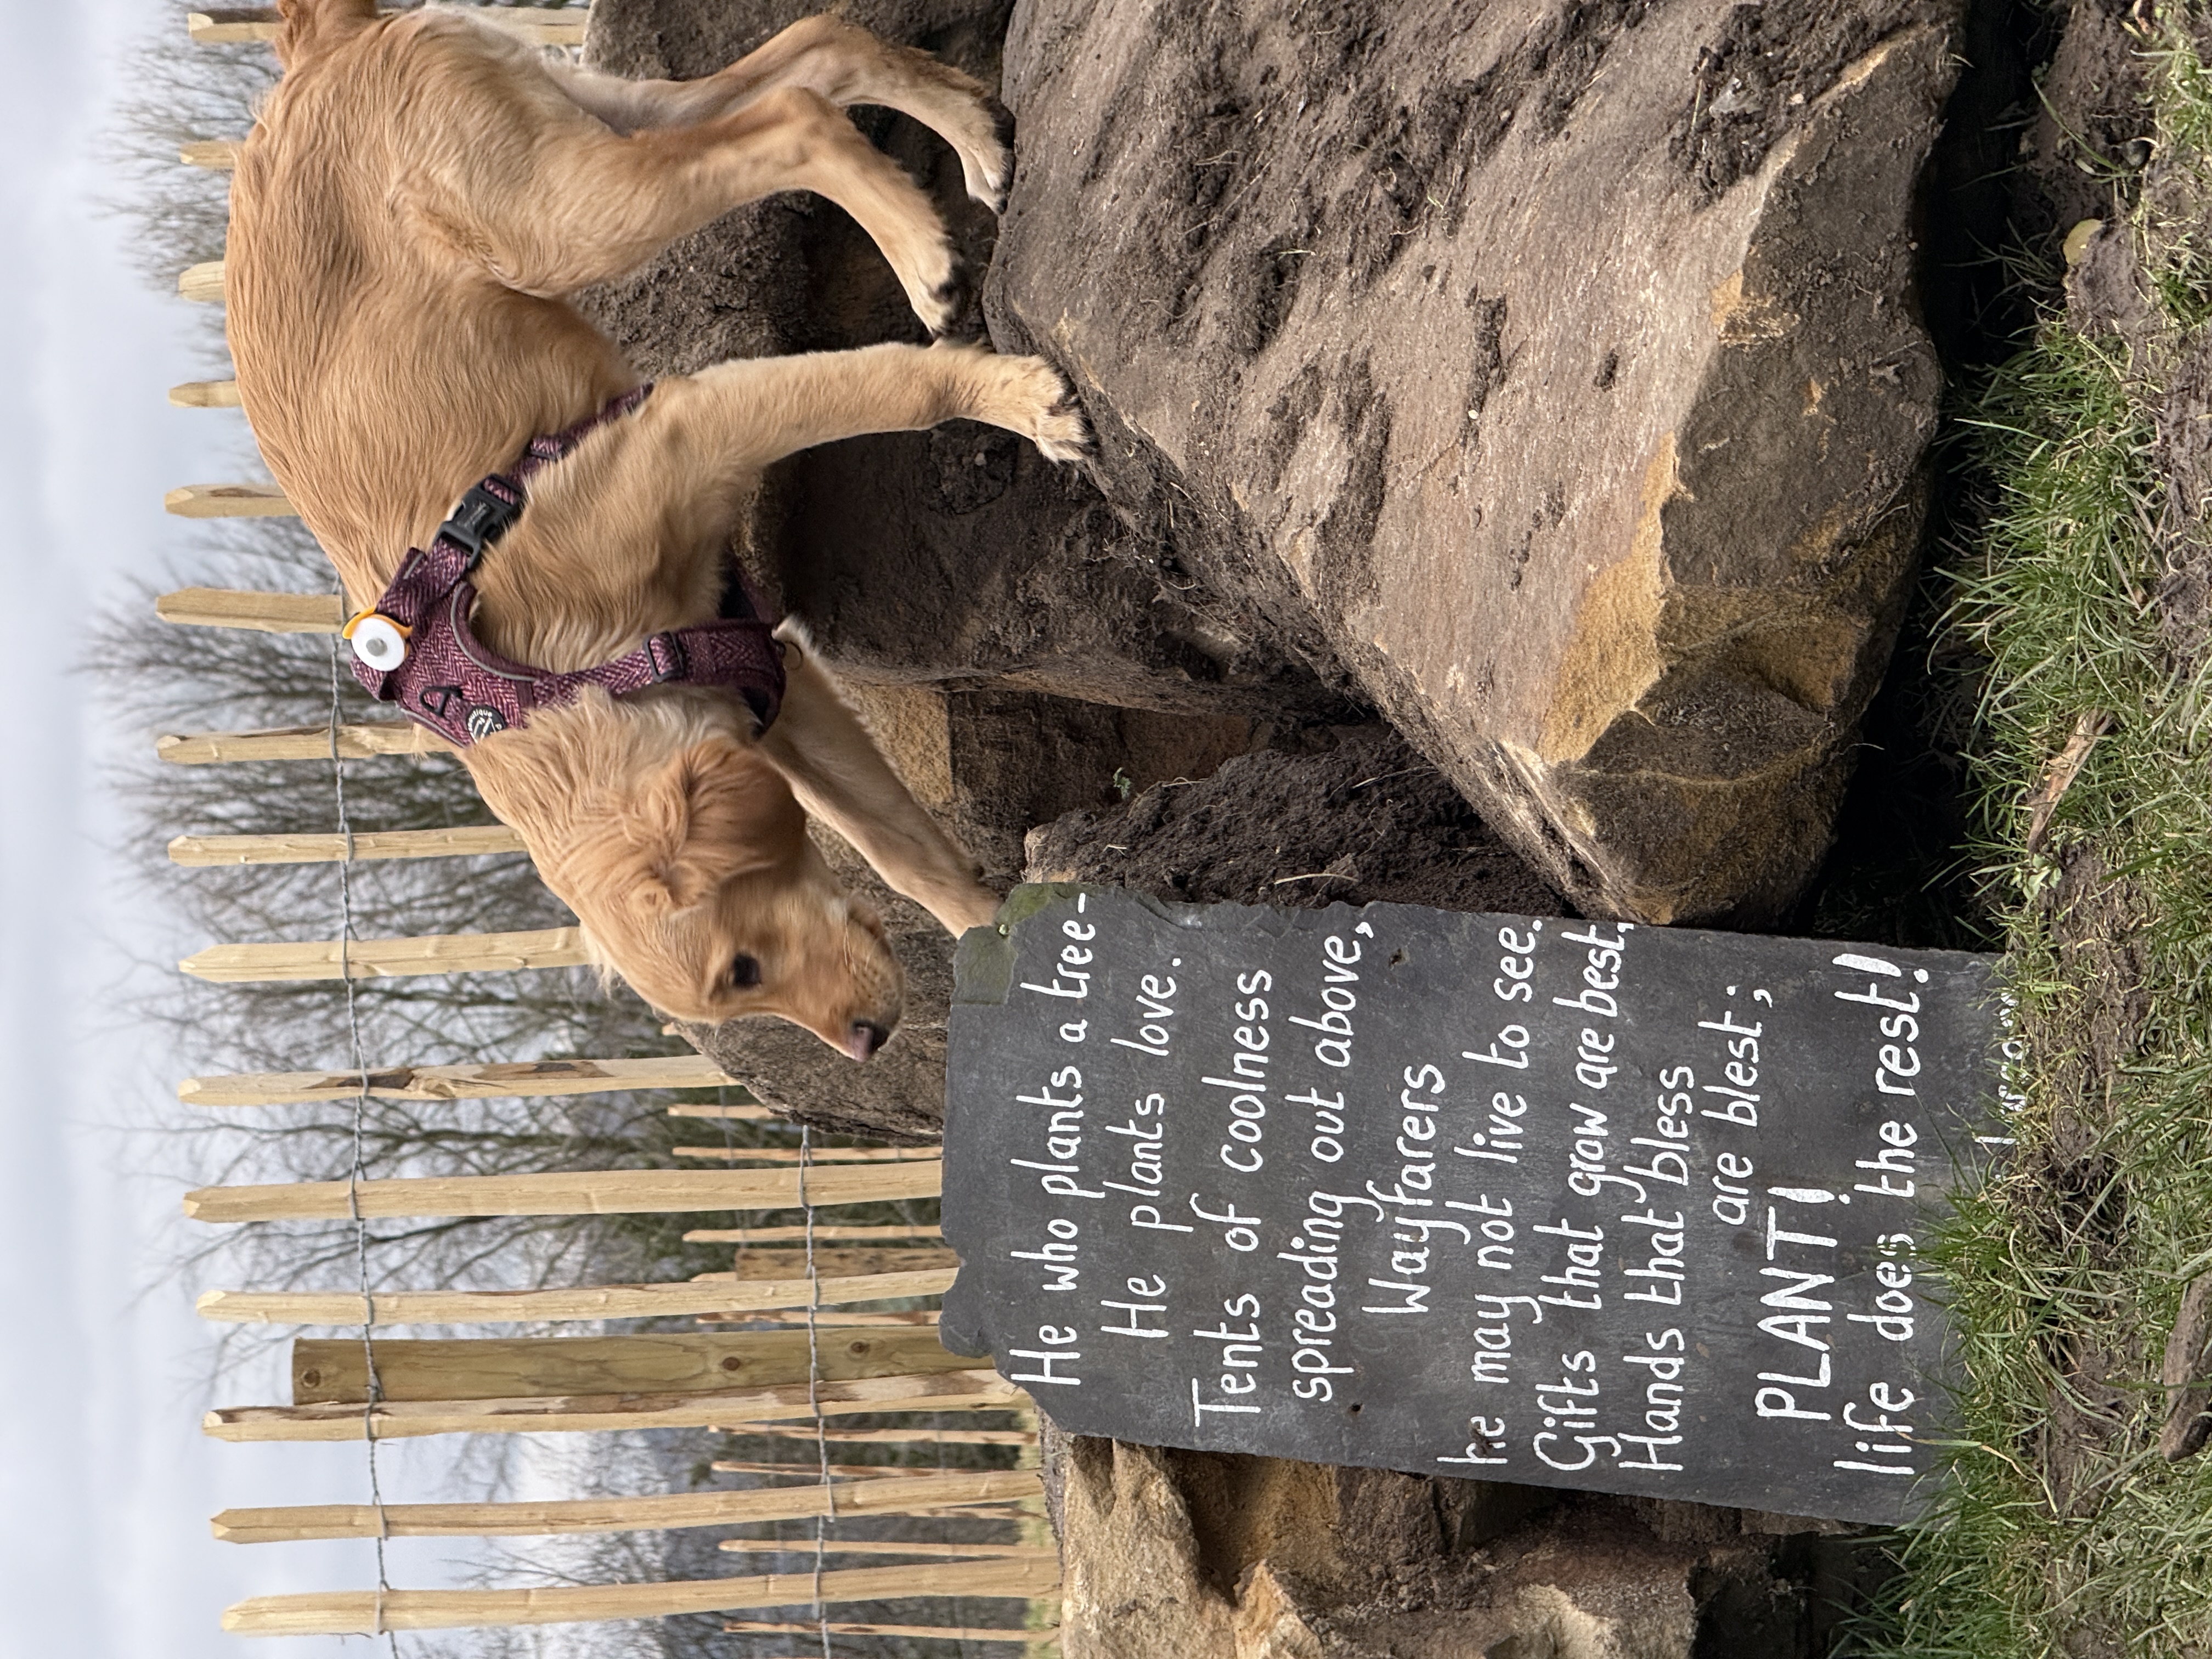 He who plants a tree-
He plants love.
Tents of coolness
spreading out above,
Wayfarers
he may not live to see.
Gifts that grow are best,
Hands that bless
are blest;
PLANT!
life does the rest!